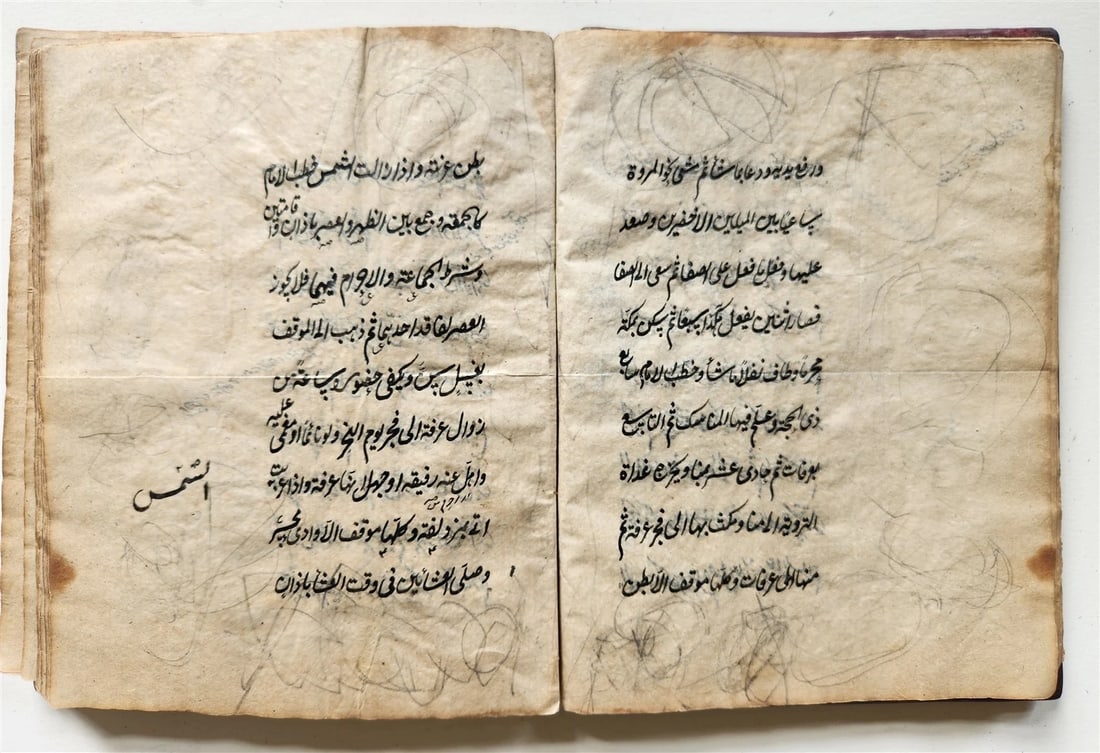 ورفع يديه ودعا بما شاء ثم مشى نحو المروة
ساعيا بين الميلين الاخضرين وصعد
عليها وفعل ما فعل على الصفا ثم سعى الى الصفا
فصار اثنين يفعل هكذا سبعا ثم سكن بمكة
محرما وطاف نفلا ما شاء وخطب الامام سابع
ذى الحجة وعلم فيها المناسك ثم التاسع
بعرفات ثم حادى عشر بمنا ويخرج غداة
التروية الى منا ومكث بها الى فجر عرفة ثم
منها الى عرفات وكلها موقف الا بطن
بطن عرنة واذا زالت الشمس خطب الامام
كالجمعة وجمع بين الظهر والعصر باذان واقامتين
وشرط الجماعة والاحرام فيهما فلا يجوز
العصر لفاقد احدهما ثم ذهب الى الموقف
بغسل سن ويكفى حضور ساعة من
زوال عرفة الى فجر يوم النحر ولو نائما او مغمى عليه
واهل عنه رفيقه او جهل انها عرفة واذا غربت
اتى بمزدلفة وكلها موقف الا وادى محسر
وصلى العشائين فى وقت العشا باذان
الشمس